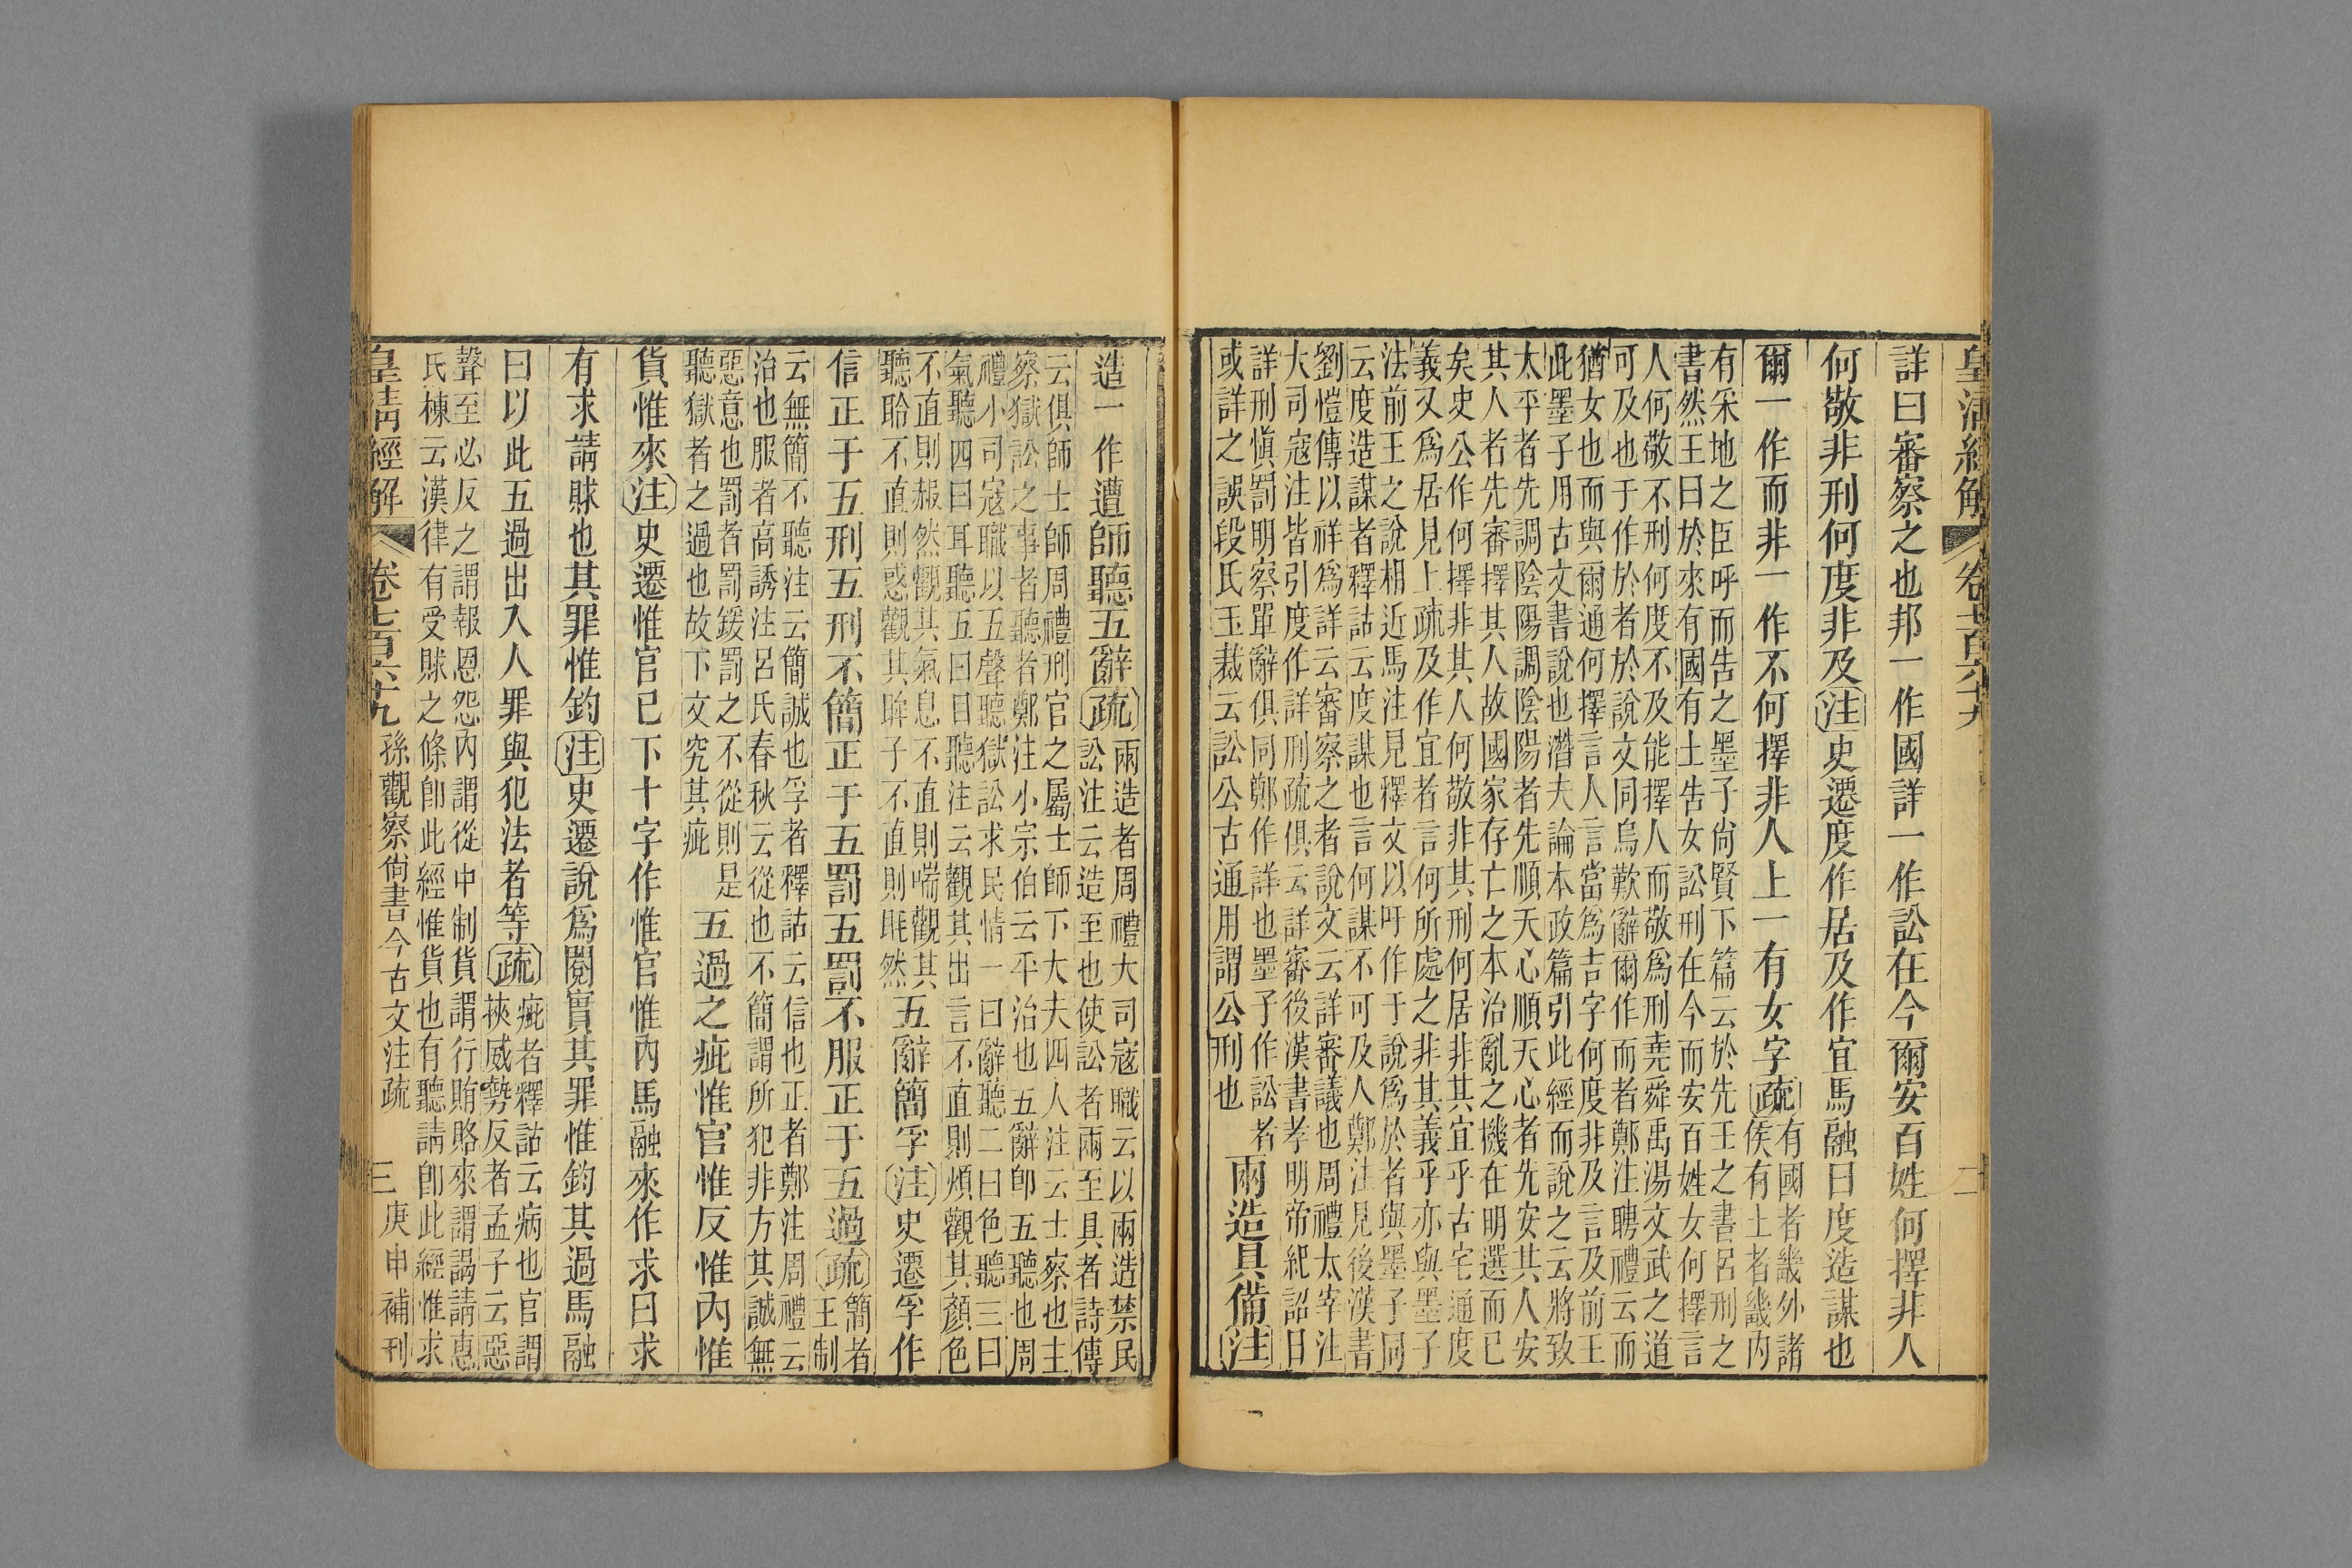 皇清經解 卷七百六十九 二
詳曰審察之也邦一作國詳一作訟在今爾安百姓何擇非人
何敬非刑何度非及注史遷度作居及作宜馬融曰度造謀也
爾一作而非一作不何擇非人上一有女字疏
有國者畿外諸
侯有土者畿內
有采地之臣呼而告之墨子尚賢下篇云於先王之書呂刑之
書然王曰於來有國有土告女訟刑在今而安百姓女何擇言
人何敬不刑何度不及能擇人而敬爲刑堯舜禹湯文武之道
可及也于作於者於說文同烏歎辭爾作而者鄭注聘禮云而
猶女也而與爾通何擇言人言當爲吉字何度非及言及前王
此墨子用古文書說也潛夫論本政篇引此經而說之云將致
太平者先調陰陽調陰陽者先順天心順天心者先安其人安
其人者先審擇其人故國家存亡之本治亂之機在明選而已
矣史公作何擇非其人何敬非其刑何居非其宜乎古宅通度
義又爲居見上疏及作宜者言何所處之非其義乎亦與墨子
法前王之說相近馬注見釋文以吁作于說爲於者與墨子同
云度造謀者釋詁云度謀也言何謀不可及人鄭注見後漢書
劉愷傳以祥爲詳云審察之者說文云詳審議也周禮太宰注
大司寇注皆引度作詳刑疏俱云詳審後漢書孝明帝紀詔曰
詳刑愼罰明察單辭俱同鄭作詳也墨子作訟者
或詳之誤段氏玉裁云訟公古通用謂公刑也
兩造具備注
造一作遭師聽五辭疏
兩造者周禮大司寇職云以兩造禁民
訟注云造至也使訟者兩至具者詩傳
云俱師士師周禮刑官之屬士師下大夫四人注云士察也主
察獄訟之事者聽者鄭注小宗伯云平治也五辭卽五聽也周
禮小司寇職以五聲聽獄訟求民情一曰辭聽二曰色聽三曰
氣聽四曰耳聽五曰目聽注云觀其出言不直則煩觀其顏色
不直則赧然觀其氣息不直則喘觀其
聽聆不直則惑觀其眸子不直則眊然
五辭簡孚注史遷孚作
信正于五刑五刑不簡正于五罰五罰不服正于五過疏
簡者
王制
云無簡不聽注云簡誠也孚者釋詁云信也正者鄭注周禮云
治也服者高誘注呂氏春秋云從也不簡謂所犯非方其誠無
惡意也罰者罰鍰罰之不從則是
聽獄者之過也故下文究其疵
五過之疵惟官惟反惟內惟
貨惟來注史遷惟官已下十字作惟官惟內馬融來作求曰求
有求請賕也其罪惟鈞注史遷說爲閱實其罪惟鈞其過馬融
曰以此五過出入人罪與犯法者等疏
疵者釋詁云病也官謂
挾威勢反者孟子云惡
聲至必反之謂報恩怨內謂從中制貨謂行賄賂來謂謁請惠
氏棟云漢律有受賕之條卽此經惟貨也有聽請卽此經惟求
皇清經解 卷七百六十九 孫觀察尙書今古文注疏 三 庚申補刊